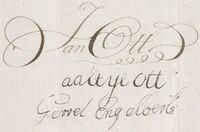 Jan Ott
aaltye Ott
Gerret Engelberts